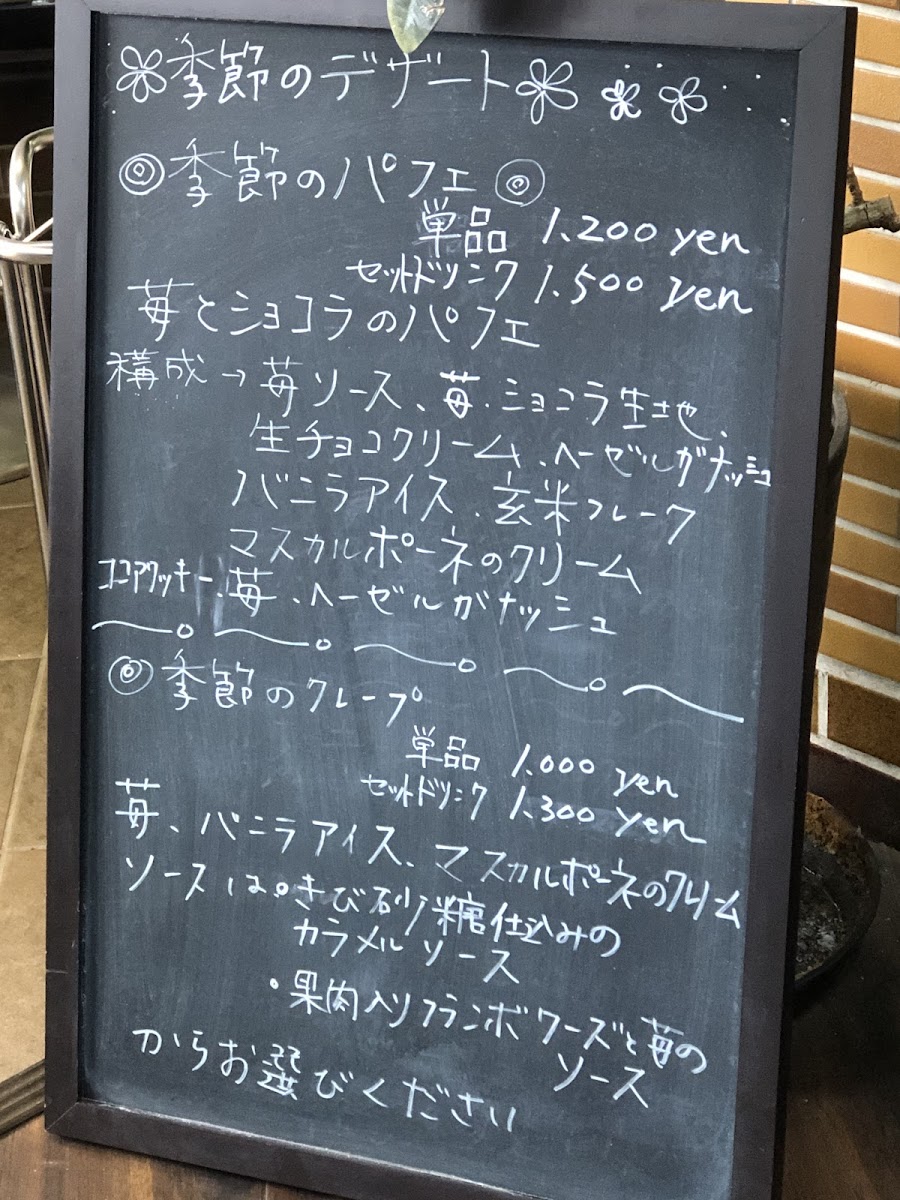 季節のデザート
◎季節のパフェ◎
単品 1.200 yen
セットドリンク 1.500 yen
苺とショコラのパフェ
構成→苺ソース、苺.ショコラ生地、
生チョコクリーム、ヘーゼルガナッシュ
バニラアイス.玄米フレーク
マスカルポーネのクリーム
ココアクッキー.苺.ヘーゼルガナッシュ
◎季節のクレープ
単品 1.000 yen
セットドリンク 1.300 yen
苺、バニラアイス、マスカルポーネのクリーム
ソースは・きび砂糖仕込みの
カラメルソース
・果肉入りフランボワーズと苺の
ソース
からお選びください